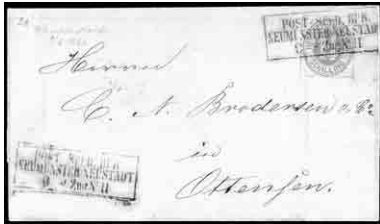 POST SPED. BUR.
NEUMÜNSTER-NEUSTADT
Herrn
C. A. Brodersen & Co
in
Ottensen.
POST SPED. BUR.
NEUMÜNSTER-NEUSTADT